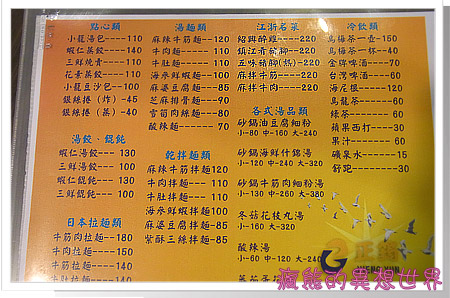 點心類
小籠湯包----110
蝦仁蒸餃----140
三鮮燒賣----110
花素蒸餃----110
小籠豆沙包---110
銀絲捲（炸）-45
銀絲捲（蒸）-40
湯餃、餛飩
蝦仁湯餃--- 130
三鮮湯餃--- 100
蝦仁餛飩--- 130
三鮮餛飩--- 100
日本拉麵類
牛筋肉拉麵--180
牛肉拉麵----150
湯麵類
麻辣牛筋麵--120
牛肉麵------110
牛肚麵------110
海參鮮蝦麵--110
麻婆豆腐麵---85
芝麻排骨麵---90
雪筍肉絲麵---80
酸辣麵--- 70
乾拌麵類
麻辣牛筋拌麵-120
牛肉拌麵----110
牛肚拌麵----110
海參鮮蝦拌麵-110
麻婆豆腐拌麵--85
紫酥三絲拌麵--80
江浙名菜
紹興醉雞----220
鎮江肴豬腳--220
五味豬腳(熱)-220
麻辣牛筋----220
麻辣牛肉----220
各式湯品類
砂鍋油豆腐細粉
小-80 中-160 大-240
砂鍋海鮮什錦湯
小-120 中-240 大-320
砂鍋牛筋肉細粉湯
小-120 中-240 大-320
冬菇花枝丸湯
小-120 中-240 大-320
酸辣湯
小-60 中-120 大-240
冷飲類
烏梅茶一壺-160
烏梅茶一杯--40
金牌啤酒----60
台灣啤酒----60
海尼根------120
烏龍茶------60
綠茶--------60
蘋果西打----30
果汁--------60
礦泉水------15
舒跑--------30
瘋熊的異想世界